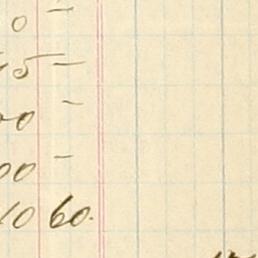 0 —
15 —
00 —
00 —
10 60.